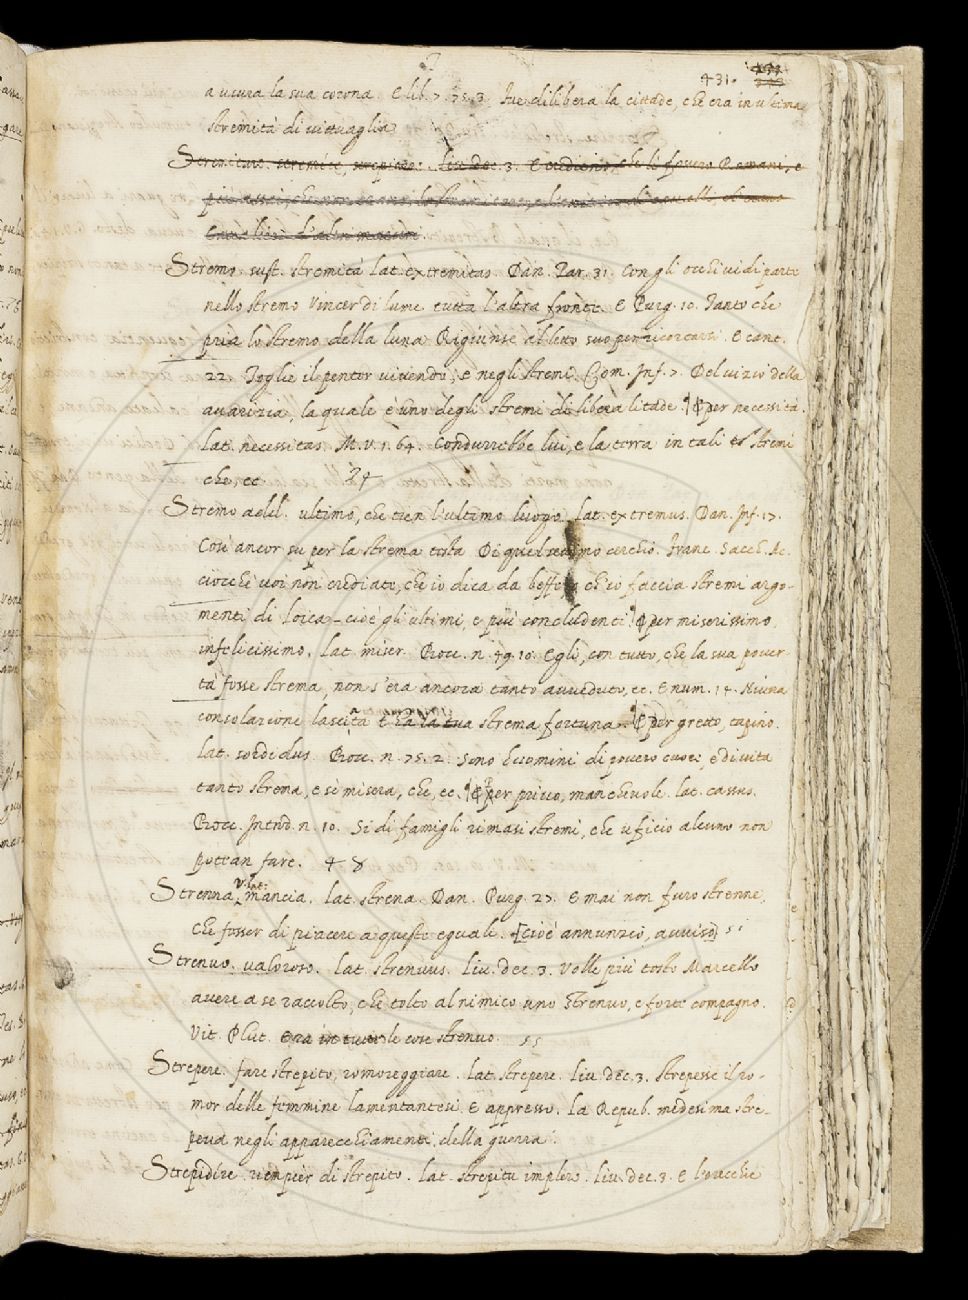 431.
a ucura la sua corona. E lib. 7. 75. 3. fue dilibera la cittade, che era in ultima
stremità di vittuaglia
Stremo. sust. stremità lat. extremitas. Dan. Par. 31. Con gli occhi vidi parte
nello stremo Vincer di lume tutta l'altra fronte. E Purg. 10. Tanto che
pria lo stremo della luna Rigiunse al letto suo per ricorcarsi. E cant.
22. Toglie il penter vivendo, e negli stremi. Com. Inf. 7. Del vizio della
avarizia, la quale è uno degli stremi di libera litade. ¶ per necessità.
lat. necessitas. M. V. 1. 64. Condurrebbe lui, e la terra in tali stremi
che, ec. 24
Stremo add. ultimo, che tien l'ultimo luogo. lat. extremus. Dan. Inf. 17.
Così ancor su per la strema testa Di quel settimo cerchio. Franc. Sacch. Ac
ciocchè voi non crediate, che io dica da beffe, ch'io faccia stremi argo-
menti di loica - cioè gli ultimi, e più concludenti ¶ per miserissimo,
infelicissimo. lat. miser. Bocc. n. 49. 10. Egli, con tutto, che la sua pover-
tà fosse strema, non s'era ancora tanto avveduto, ec. E num. 14. Niuna
consolazione lasciata t'ha la tua strema fortuna. ¶ per gretto, tapino.
lat. sordidus. Bocc. n. 75. 2. Sono huomini di povero cuore e di vita
tanto strema, e sì misera, che, ec. ¶ per privo, manchevole. lat. cassus.
Bocc. Introd. n. 10. Si di famigli rimasi stremi, che uficio alcuno non
potean fare. 48
Strenna V. lat. mancia. lat. strena. Dan. Purg. 27. E mai non furo strenne,
Che fosser di piacere a queste eguale. [cioè annunzio, avviso] 51
Strenuo. valoroso. lat. strenuus. Liv. dec. 3. Volle più tosto Marcello
avere a se raccolto, che tolto al nimico uno strenuo, e forte compagno.
Vit. Plut. Era in tutte le cose strenuo. 55
Strepere. fare strepito, romoreggiare. lat. strepere. Liv. dec. 3. Strepesse il ro-
mor delle femmine lamentantesi. E appresso. La Repub. medesima stre-
peva negli apparecchiamenti della guerra.
Strepidire. riempier di strepito. lat. strepitu implere. Liv. dec. 3. E l'orecchie